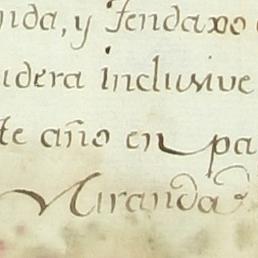 nida, y Tendaxo
idera inclusive
te año en pa
Miranda